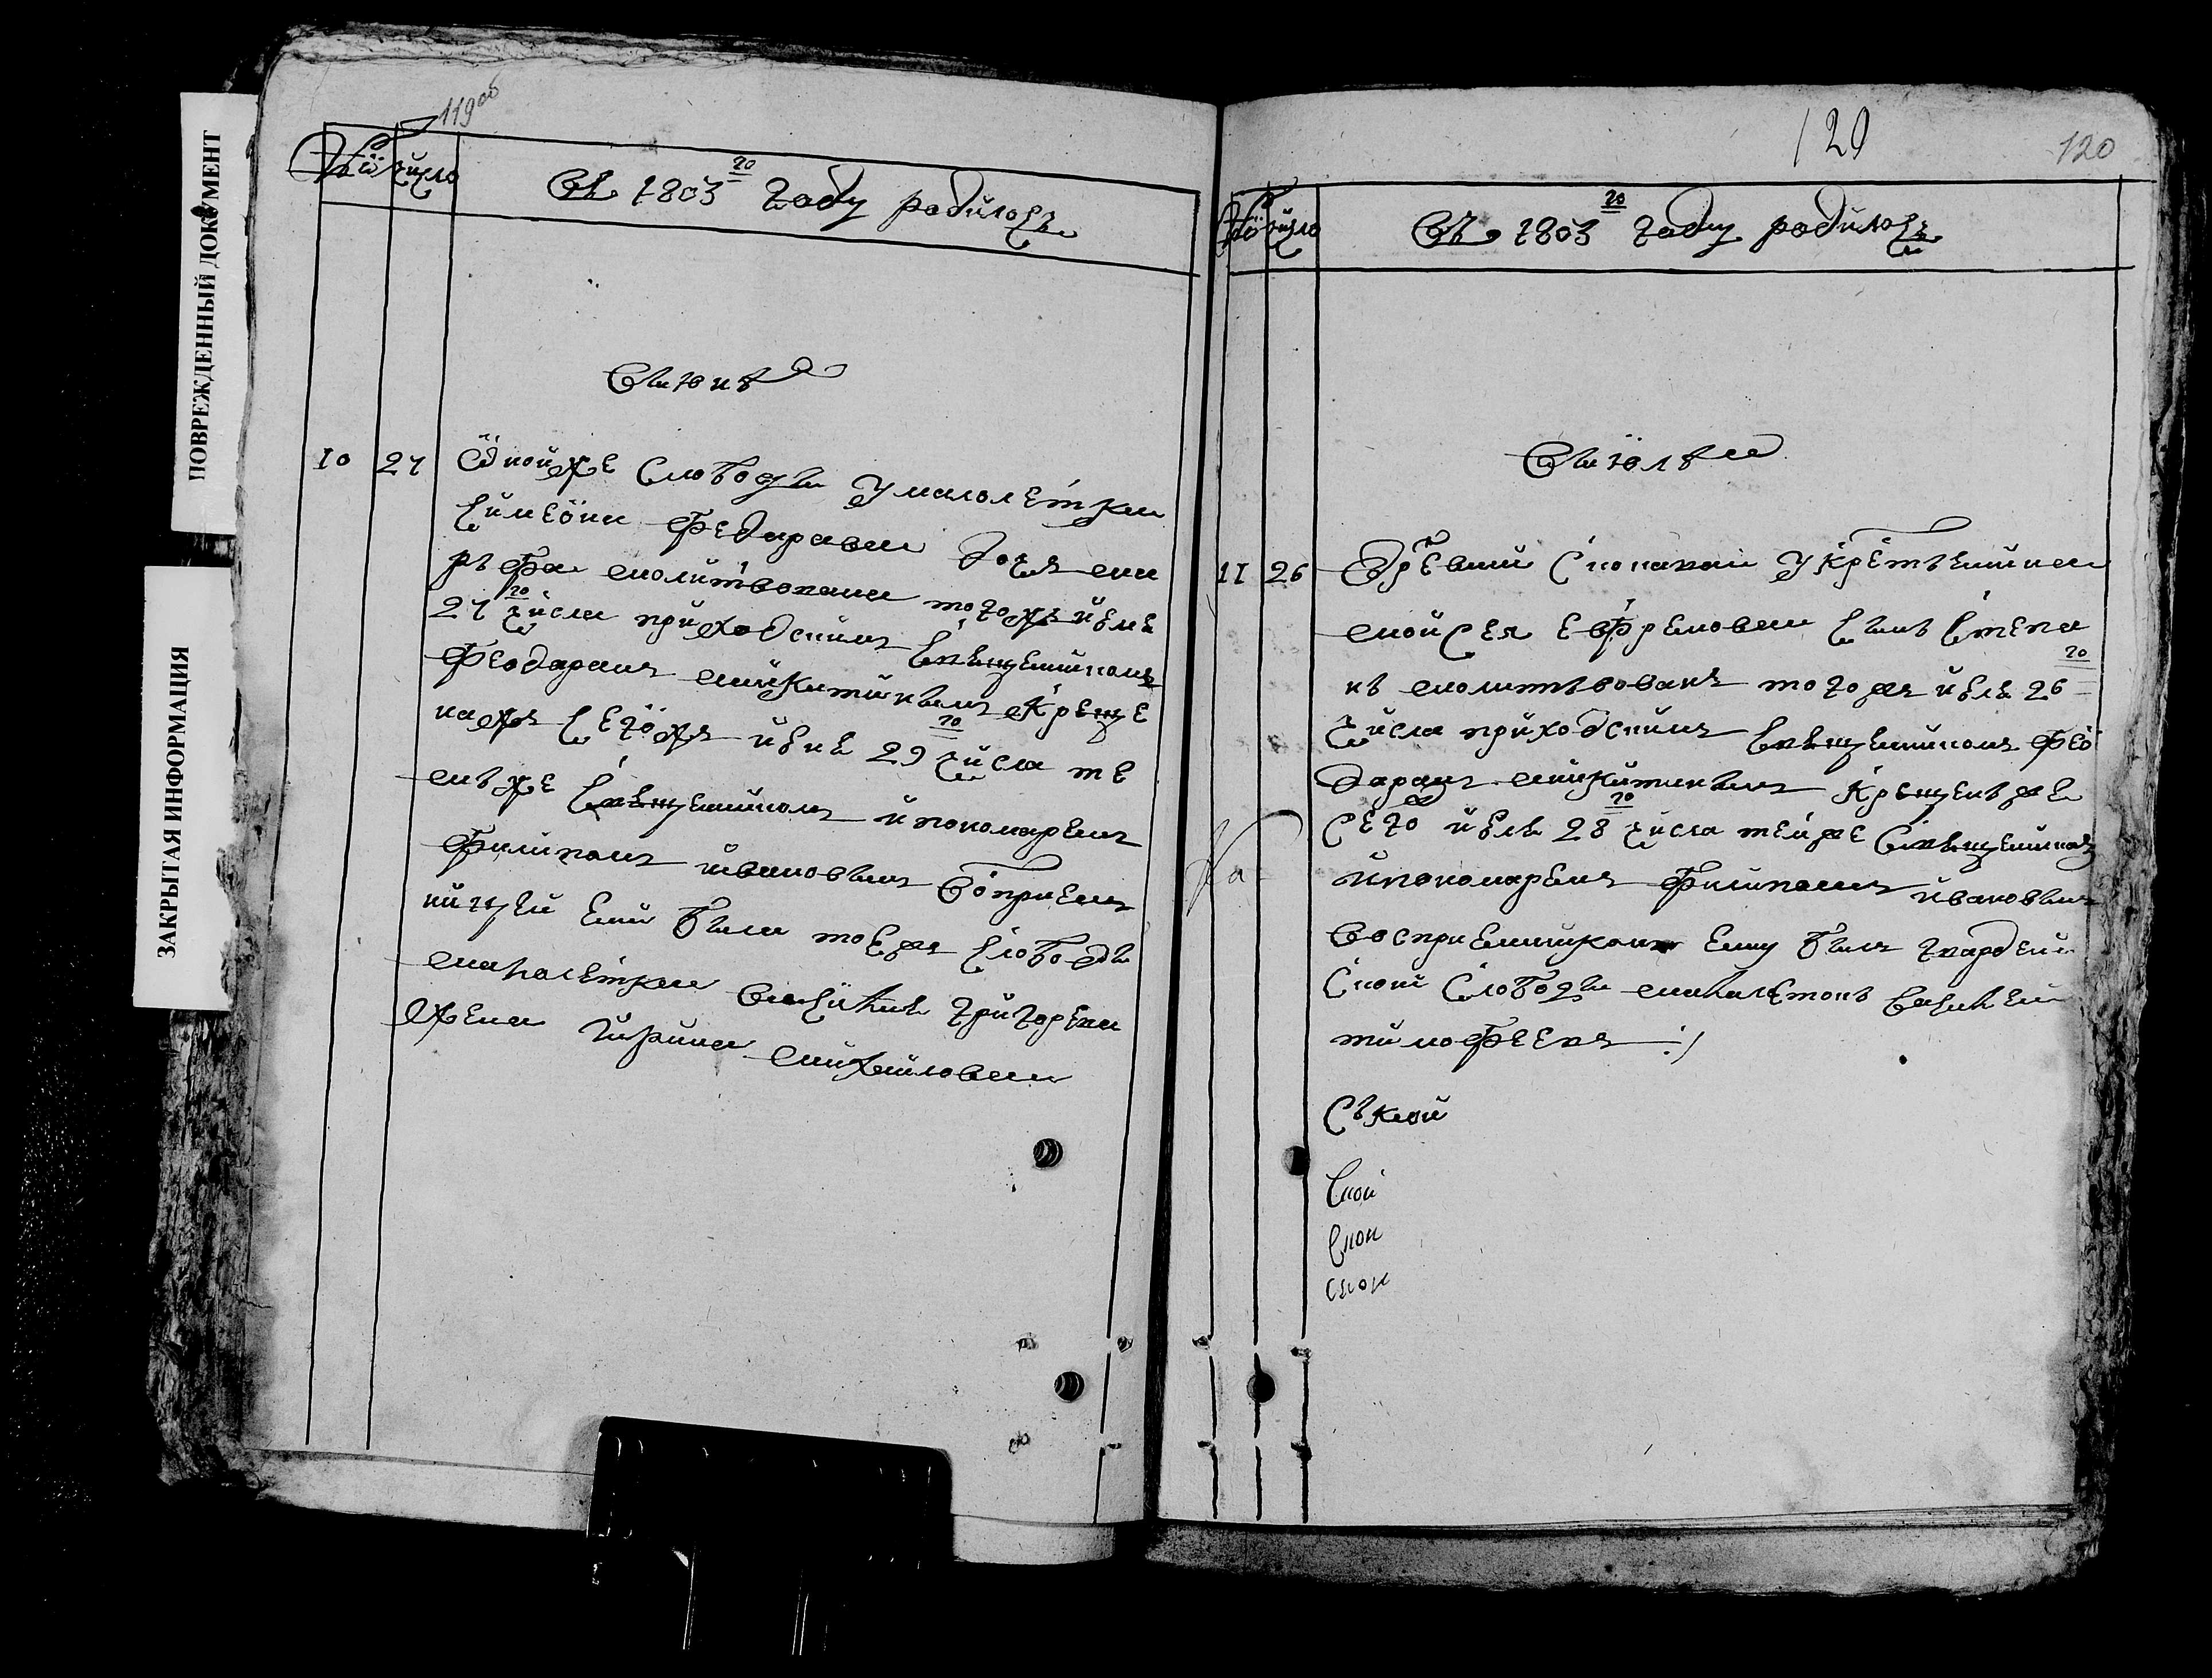 ПОВРЕЖДЕННЫЙ ДОКУМЕНТ
ЗАКРЫТАЯ ИНФОРМАЦИЯ
119об
число
Въ 1803го году родилось
Въ июне
10 27 Оной же слободы у малолетка
симеона федарава дочь ма
рѣфа молитвована тогожъ июня
27го числа приходскимъ священникомъ
феодарамъ никитинымъ креще
на жъ сегожъ июня 29го числа те
мъ же священникомъ и пономаремъ
филипомъ ивановымъ воприем
ницей ей была тоежъ слободы
малалетка василия григорева
жена ирина михайлова
120
120
число
Въ 1803го году родилось
Въ июле
11 26 Древни у крестьенина
моисея ефремова сынъ степа
нъ молитвованъ тогожъ июля 26го
числа приходскимъ священникомъ фео
дарамъ никитинымъ крещенъ же
сего июля 28го числа темже священником
и пономаремъ филипомъ ивановымъ
восприемникомъ ему былъ гвардей
ской слободы малалетокъ василей
тимофеевъ
ской
ской
ской